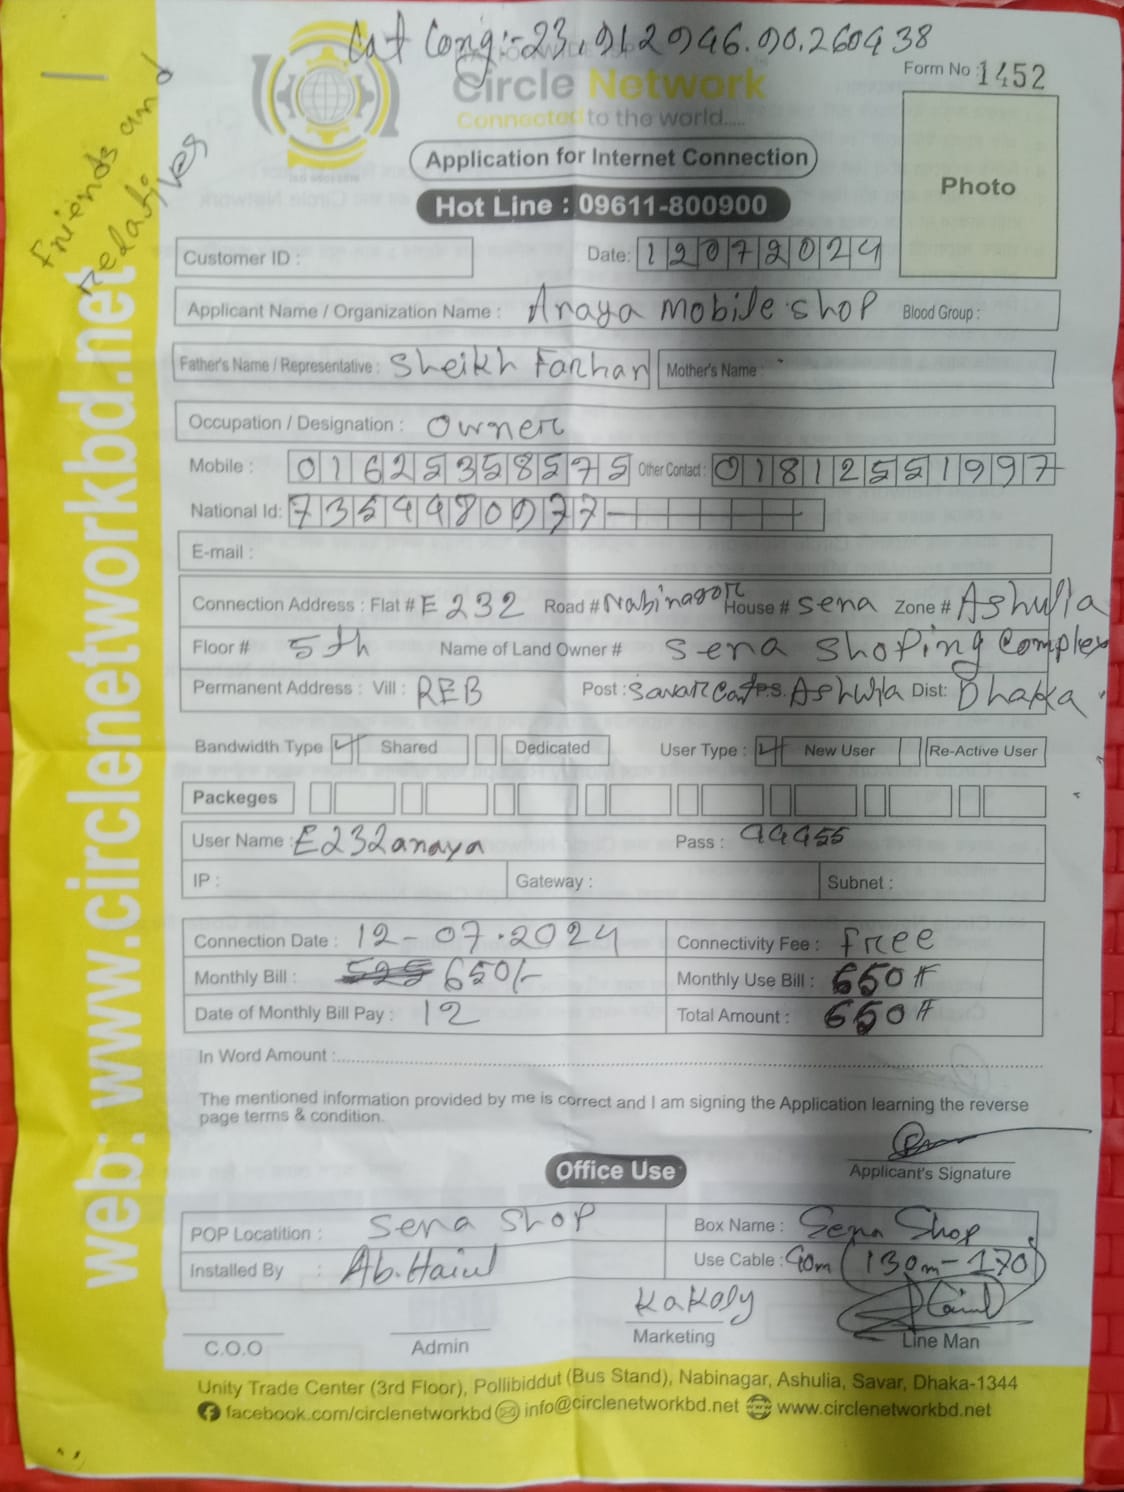 Lat Long:-23.912946.90.260438
Friends and
relatives
Circle Network
Connected to the world.....
Form No : 1452
Application for Internet Connection
Photo
Hot Line : 09611-800900
Customer ID :
Date: 12072024
Applicant Name / Organization Name : Anaya mobile shop Blood Group :
Father's Name / Representative : Sheikh Farhan Mother's Name :
Occupation / Designation : Owner
Mobile : 01625358575 Other Contact : 01812551997
National Id: 7354480977
E-mail :
Connection Address : Flat # E 232 Road # Nabinagor House # Sena Zone # Ashulia
Floor # 5th Name of Land Owner # Sena Shoping Complex
Permanent Address : Vill : REB Post : Savar Cant P.S. Ashulia Dist: Dhaka
Bandwidth Type Shared Dedicated User Type : New User Re-Active User
Packeges
User Name : E232anaya Pass : 44455
IP : Gateway : Subnet :
Connection Date : 12-07.2024 Connectivity Fee : free
Monthly Bill : 525 650/- Monthly Use Bill : 650 tt
Date of Monthly Bill Pay : 12 Total Amount : 650 tt
In Word Amount :
The mentioned information provided by me is correct and I am signing the Application learning the reverse
page terms & condition.
Applicant's Signature
Office Use
POP Locatition : Sena Shop Box Name : Sena Shop
Installed By : Ab. Hairul Use Cable : 40m (130m-170)
Kakoly
C.O.O Admin Marketing Line Man
Unity Trade Center (3rd Floor), Pollibiddut (Bus Stand), Nabinagar, Ashulia, Savar, Dhaka-1344
facebook.com/circlenetworkbd info@circlenetworkbd.net www.circlenetworkbd.net
web: www.circlenetworkbd.net